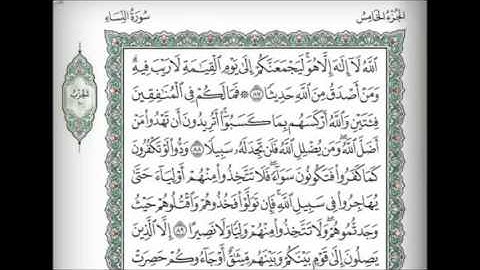 سُورَةُ النِّسَاءِ
الجُزْءُ الخَامِسُ
اللَّهُ لَا إِلَٰهَ إِلَّا هُوَ لَيَجْمَعَنَّكُمْ إِلَىٰ يَوْمِ الْقِيَامَةِ لَا رَيْبَ فِيهِ
وَمَنْ أَصْدَقُ مِنَ اللَّهِ حَدِيثًا ٨٧ ۞ فَمَا لَكُمْ فِي الْمُنَافِقِينَ
فِئَتَيْنِ وَاللَّهُ أَرْكَسَهُم بِمَا كَسَبُوا أَتُرِيدُونَ أَن تَهْدُوا مَنْ
أَضَلَّ اللَّهُ وَمَن يُضْلِلِ اللَّهُ فَلَن تَجِدَ لَهُ سَبِيلًا ٨٨ وَدُّوا لَوْ تَكْفُرُونَ
كَمَا كَفَرُوا فَتَكُونُونَ سَوَاءً فَلَا تَتَّخِذُوا مِنْهُمْ أَوْلِيَاءَ حَتَّىٰ
يُهَاجِرُوا فِي سَبِيلِ اللَّهِ فَإِن تَوَلَّوْا فَخُذُوهُمْ وَاقْتُلُوهُمْ حَيْثُ
وَجَدتُّمُوهُمْ وَلَا تَتَّخِذُوا مِنْهُمْ وَلِيًّا وَلَا نَصِيرًا ٨٩ إِلَّا الَّذِينَ
يَصِلُونَ إِلَىٰ قَوْمٍ بَيْنَكُمْ وَبَيْنَهُم مِّيثَاقٌ أَوْ جَاءُوكُمْ حَصِرَتْ